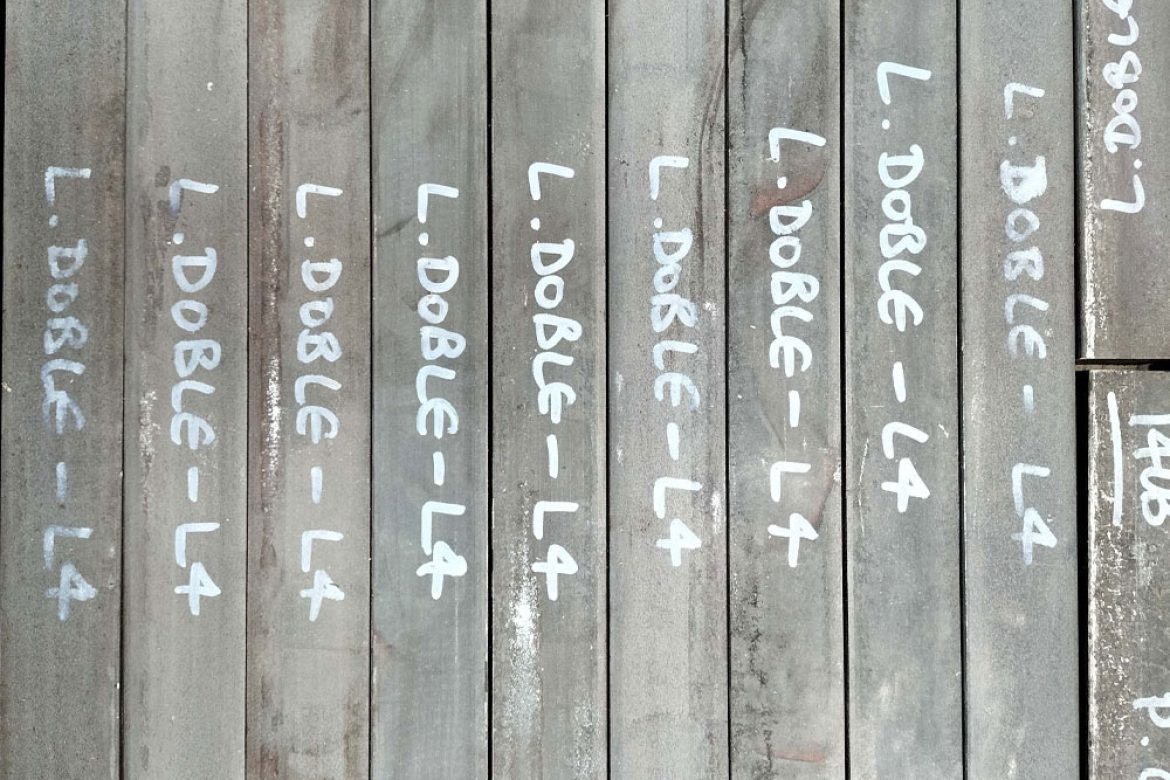 L.DOBLE - L4
L.DOBLE - L4
L.DOBLE - L4
L.DOBLE - L4
L.DOBLE - L4
L.DOBLE - L4
L.DOBLE - L4
L.DOBLE - L4
L.DOBLE - L4